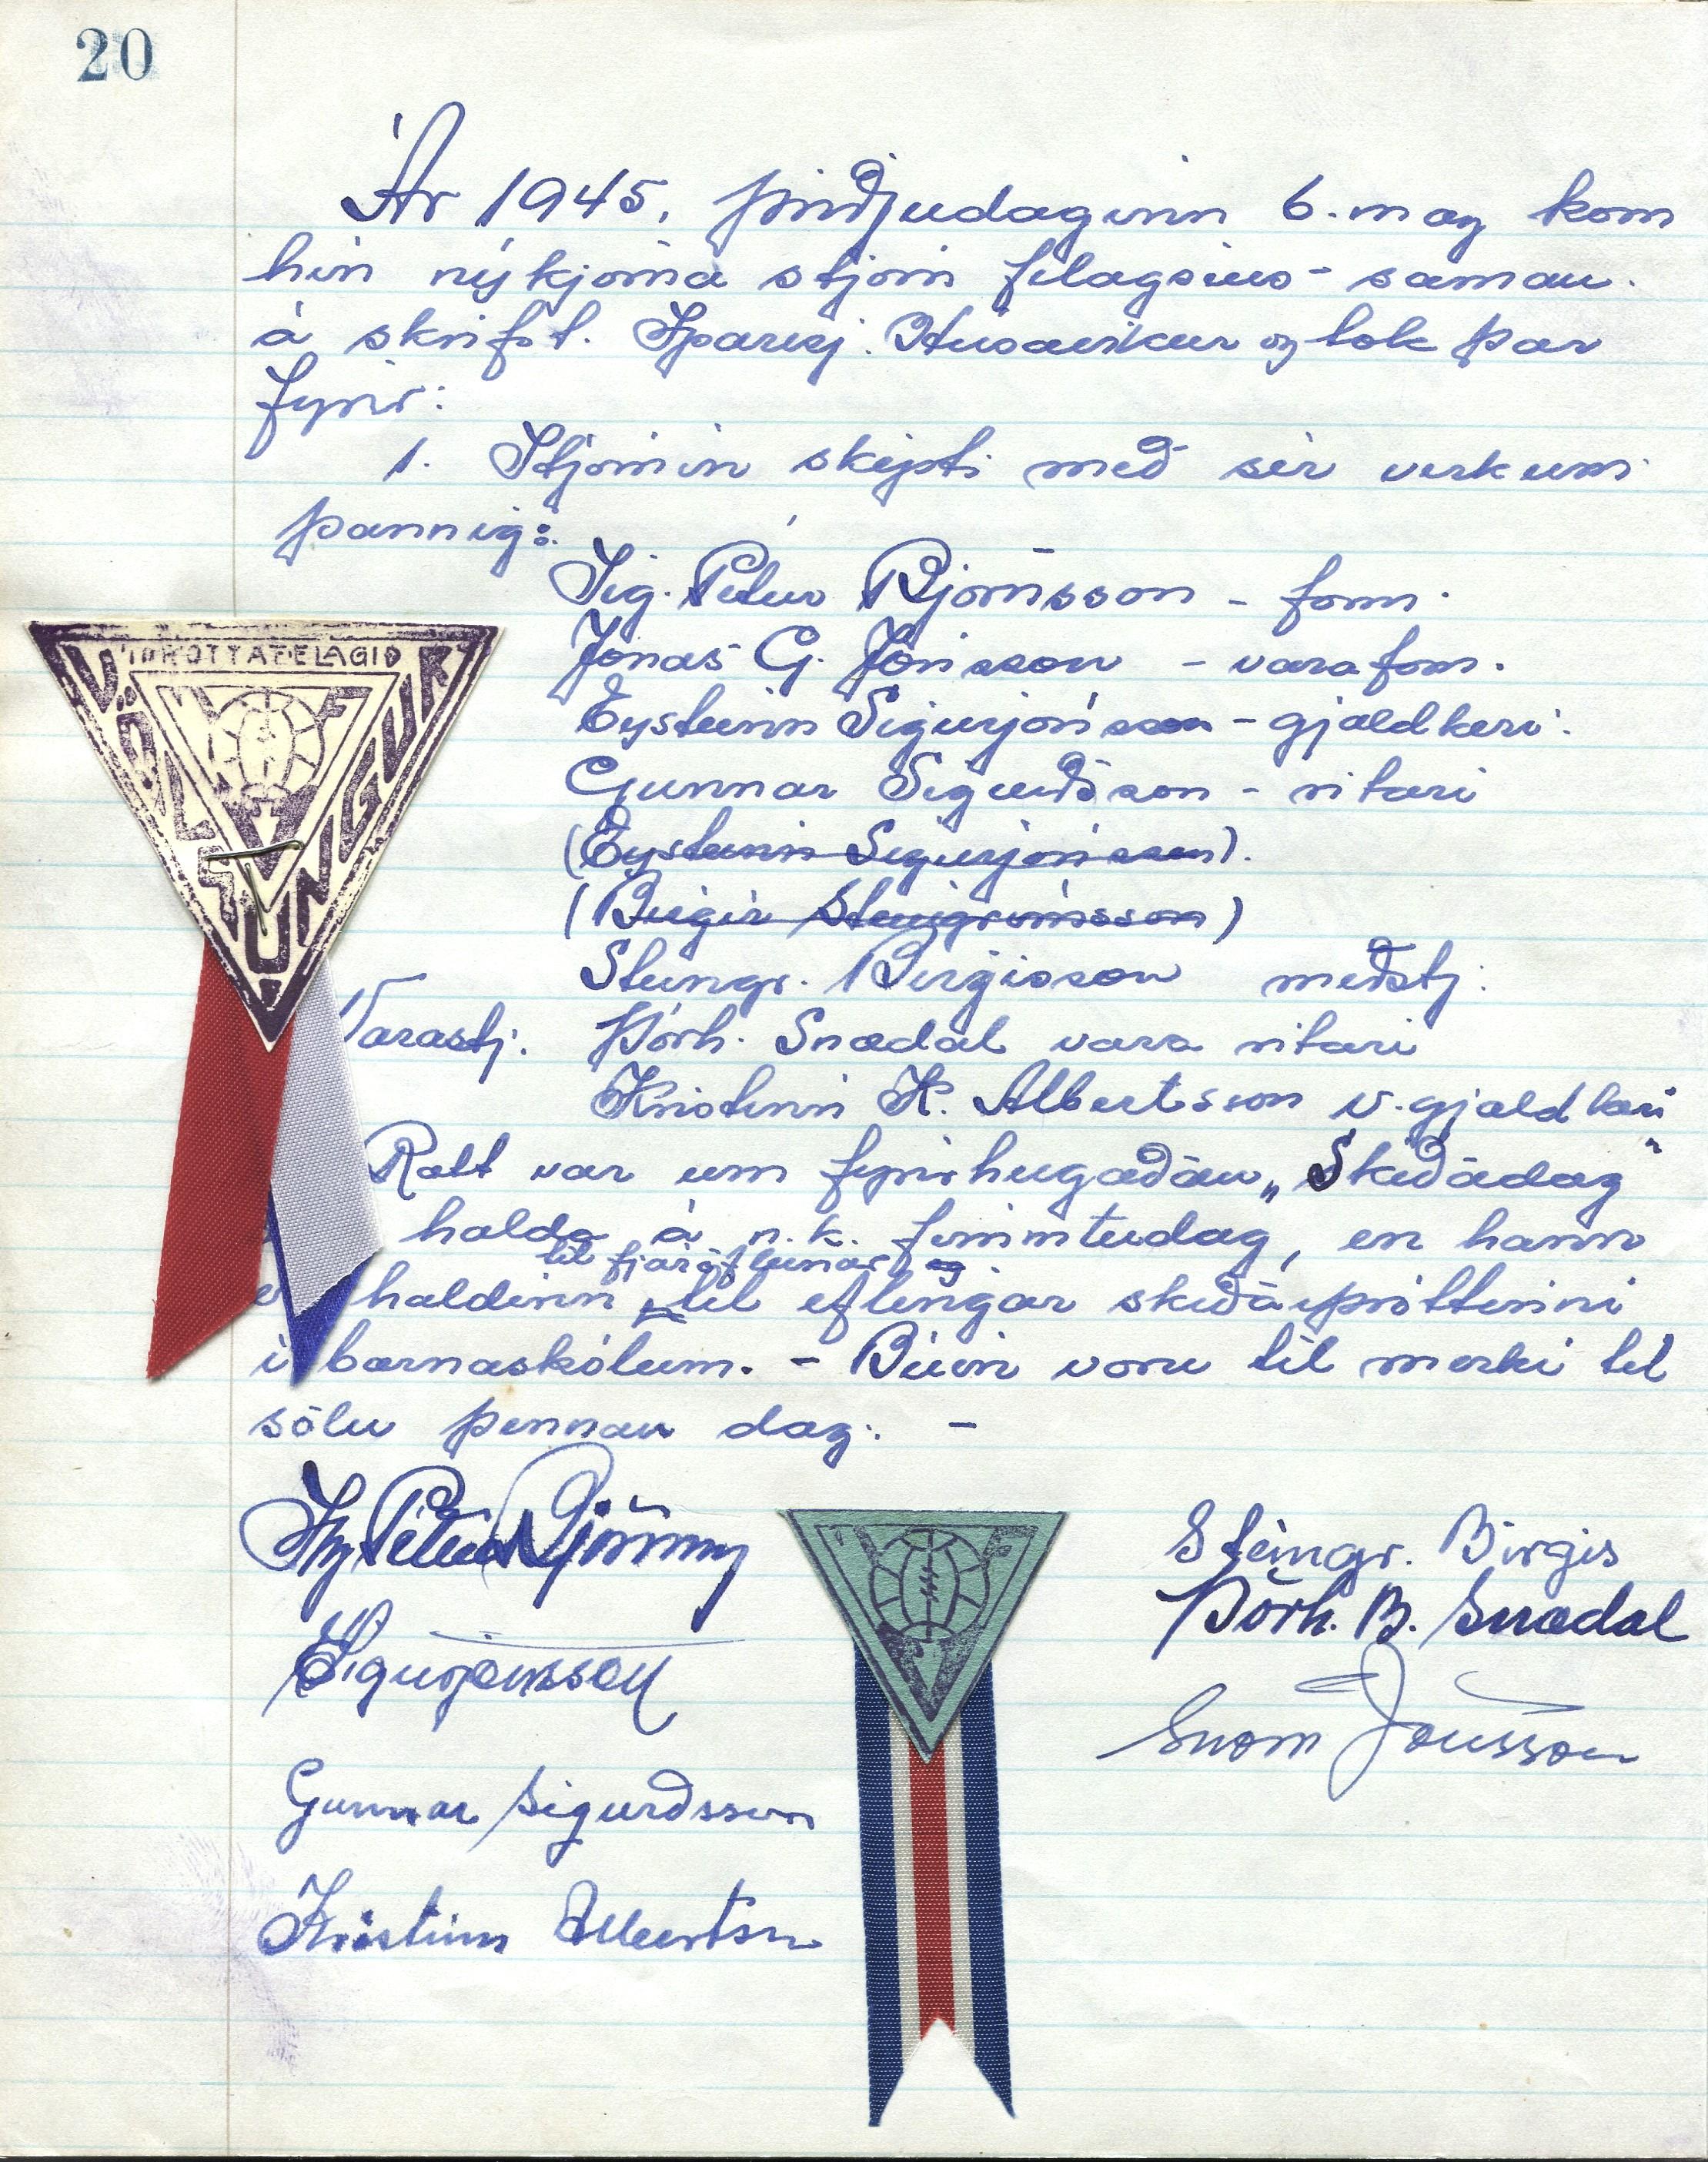 20
Ár 1945, þriðjudaginn 6. marz kom
hin nýkjörna stjórn félagsins saman
á skrifst. Sparisj. Húsavíkur og tók þar
fyrir:
1. Stjórnin skipti með sér verkum
þannig:
Sig. Pétur Björnsson - form.
Jónas G. Jónsson - varaform.
Eysteinn Sigurjónsson - gjaldkeri.
Gunnar Sigurðsson - ritari
(Eysteinn Sigurjónsson).
(Birgir Steingrímsson)
Steingr. Birgisson meðstj.
Varastj. Þórh. Snædal vara ritari
Kristinn K. Albertsson v. gjaldkeri
Rætt var um fyrirhugaðan „Skíðadag"
halda á n.k. fimmtudag, en hann
til fjáröflunar og
haldinn til eflingar skíðaíþróttinni
í barnaskólum. - Búin voru til merki til
sölu þennan dag. -
ÍÞRÓTTAFÉLAGIÐ
VÖLSUNGUR
Í F
V
Sig Pétur Björnsson
Steingr. Birgis
Þórh. B. Snædal
E Sigurjónsson
Í F
V
Jónsson
Gunnar Sigurðsson
Kristinn Albertsson